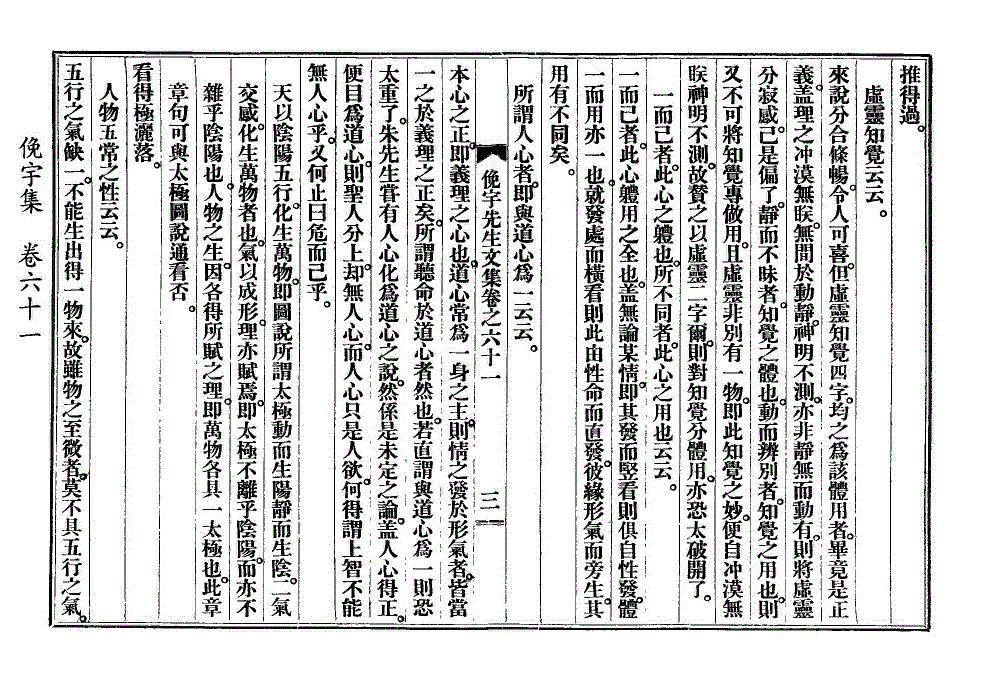 推得過。
虛靈知覺云云。
來說分合條暢。令人可喜。但虛靈知覺四字。均之爲該體用者。畢竟是正
義。盖理之冲漠無眹。無間於動靜。神明不測。亦非靜無而動有。則將虛靈
分寂感。已是偏了。靜而不昧者。知覺之體也。動而辨別者。知覺之用也。則
又不可將知覺專做用。且虛靈非別有一物。卽此知覺之妙。便自冲漠無
眹。神明不測。故贊之以虛靈二字爾。則對知覺分體用。亦恐太破開了。
一而已者。此心之軆也。所不同者。此心之用也云云。
一而已者。此心體用之全也。盖無論某情。卽其發而竪看則俱自性發。體
一而用亦一也。就發處而橫看則此由性命而直發。彼緣形氣而旁生。其
用有不同矣。
所謂人心者。卽與道心爲一云云。
俛宇先生文集卷之六十一
三
本心之正。卽義理之心也。道心常爲一身之主。則情之發於形氣者。皆當
一之於義理之正矣。所謂聽命於道心者然也。若直謂與道心爲一則恐
太重了。朱先生甞有人心化爲道心之說。然係是未定之論。盖人心得正。
便目爲道心。則聖人分上。却無人心。而人心只是人欲。何得謂上智不能
無人心乎。又何止曰危而已乎。
天以陰陽五行。化生萬物。卽圖說所謂太極動而生陽靜而生陰。二氣
交感。化生萬物者也。氣以成形。理亦賦焉。卽太極不離乎陰陽。而亦不
雜乎陰陽也。人物之生。因各得所賦之理。卽萬物各具一太極也。此章
章句可與太極圖說通看否。
看得極灑落。
人物五常之性云云。
五行之氣缺一。不能生出得一物來。故雖物之至微者。莫不具五行之氣。
俛宇集 卷六十一